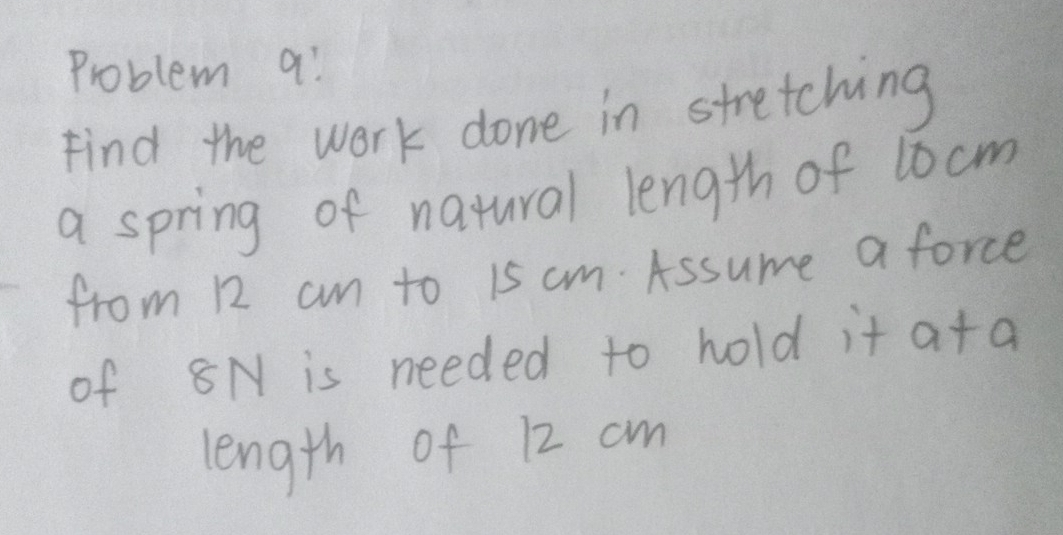 Problem 9:
Find the work done in stretching
a spring of natural length of 10 cm
from 12 cm to 15 cm. Assume a force
of 8N is needed to hold it at a
length of 12 cm